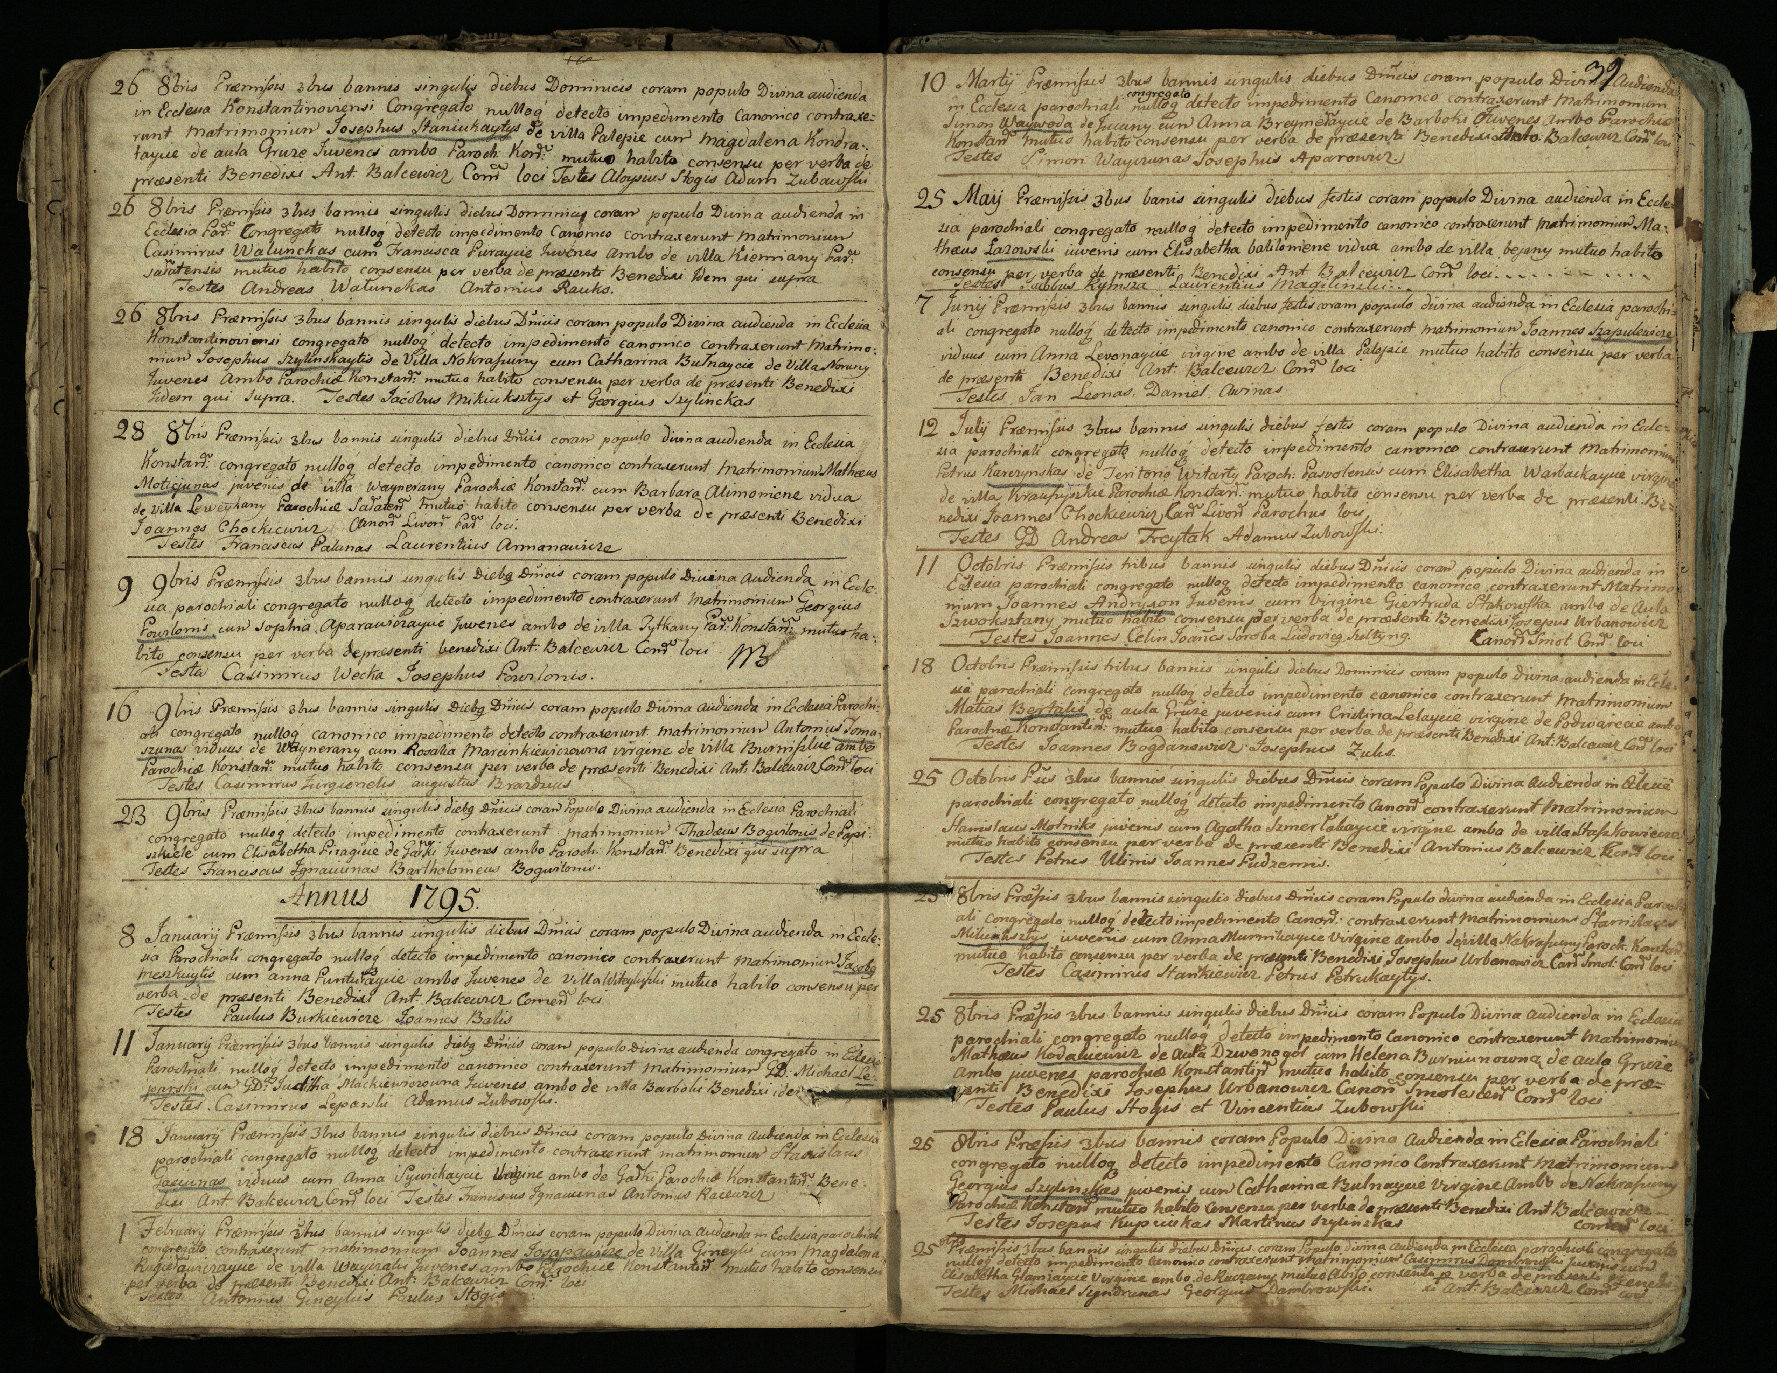 26 8bris Præmissis 3bus bannis singulis diebus Dominicis coram populo Divina audienda
in Ecclesia Konstantinoviensi Congregato nulloq detecto impedimento Canonico contraxe=
runt Matrimonium Josephus Staniukaytys de villa Palepie cum Magdalena Kondra-
taycie de aula Gruze Juvenes ambo Paroch: Kon: mutuo habito consensu per verba de
præsenti Benedixi Ant Balcewicz Com loci Testes Aloysius Stogis Adam Zubowski
26 8bris Præmissis 3bus bannis singulis diebus Dominicis coram populo Divina audienda in
Ecclesia Par: Congregato nulloq detecto impedimento Canonico contraxerunt Matrimonium
Casimirus Walunckas cum Francisca Puraycie Juvenes ambo de villa Kiemiany Par:
mutuo habito consensu per verba de præsenti Benedixi Idem qui supra
Testes Andreas Walunckas Antonius Rauks.
26 8bris Præmissis 3bus bannis singulis diebus Dnicis coram populo Divina audienda in Ecclesia
Konstantinoviensi congregato nulloq detecto impedimento canonico contraxerunt Matrimo=
nium Josephus Szylinskaytis de Villa Nokraszuny cum Catharina Butnaycie de Villa Noruny
Juvenes Ambo Parochiæ Konstan: mutuo habito consensu per verba de præsenti Benedixi
Idem qui supra. Testes Jacobus Mikiuksztys et Georgius Szylinckas
28 8bris Præmissis 3bus bannis singulis diebus Dnicis coram populo divina audienda in Ecclesia
Konstan: congregato nulloq detecto impedimento canonico contraxerunt Matrimonium Mathæus
Moticjunas juvenis de villa Waynerany Parochiæ Konstan: cum Barbara Alimoniene vidua
de villa Parochiæ mutuo habito consensu per verba de præsenti Benedixi
Joannes Chockiewicz Canon Livon Par loci.
Testes Franciscus Palunas Laurentius
9 9bris Præmissis 3bus bannis singulis Diebq Dnicis coram populo Divina Audienda in Eccle-
sia parochiali congregato nulloq detecto impedimento contraxerunt Matrimonium Georgius
Powilonis cum Sophia Aparawiczaycie Juvenes ambo de villa Pytkany Par: Konstan: mutuo ha-
bito consensu per verba de præsenti benedixi Ant: Balcewicz Com loci
Testes Casimirus Wecka Josephus Powilonis.
16 9bris Præmissis 3bus bannis singulis Diebq Dnicis coram populo Divina Audienda in Ecclesia Parochi-
ali congregato nulloq canonico impedimento detecto contraxerunt matrimonium Antonius Toma-
szunas viduus de Waynerany cum Rosalia Marcinkiewiczowna virgine de villa ambo
Parochiæ Konstan: mutuo habito consensu per verba de præsenti Benedixi Ant: Balcewicz Com loci
Testes Casimirus Jurgionelis augustus
23 9bris Præmissis 3bus bannis singulis diebq Dnicis coram Populo Divina audienda in Ecclesia Parochiali
congregato nulloq detecto impedimento contraxerunt matrimonium Thadæus Bogwilonis de
cum Elisabetha Piragine de Juvenes ambo Paroch: Konstan: Benedixi qui supra
Testes Franciscus Ignacunas Bartholomeus Bogwilonis.
Annus 1795.
8 Januarij Præmissis 3bus bannis singulis diebus Dnicis coram populo Divina audienda in Eccle-
sia Parochiali congregato nulloq detecto impedimento canonico contraxerunt matrimonium Jacobq
Meszkuytis cum anna ambo Juvenes de Villa mutuo habito consensu per
verba de præsenti Benedixi Ant Balcewicz Comen loci
Testes Paulus Burkiewicze Joannes Balis
11 Januarij Præmissis 3bus bannis singulis diebq Dnicis coram populo Divina audienda congregato in Eclesia
Parochiali nulloq detecto impedimento canonico contraxerunt Matrimonium GD: Michael Le-
cum GD: Juditha Mackiewiczowna Juvenes ambo de villa Barboki Benedixi
Testes. Casimirus Leparski Adamus Zubowski.
18 Januarij Præmissis 3bus bannis singulis diebus Dnicis coram populo Divina Audienda in Ecclesia
parochiali congregato nulloq detecto impedimento contraxerunt matrimonium Stanislaus
viduus cum Anna virgine ambo de Parochiæ Konstantin: Bene-
dixi Ant Balcewicz Com loci Testes Franciscus Ignacunas Antonius
1 Februarij Præmissis 3bus bannis singulis diebq Dnicis coram populo Divina Audienda in Ecclesia parochiali
congregato contraxerunt matrimonium Joannes de Villa Gineylis cum Magdalena
de villa juvenes ambo Parochiæ Konstantin mutuo habito consensu
per verba de præsenti Benedixi Ant: Balcewicz Com: loci
Testes Antonius Gineylis Paulus Stogis
39
10 Martij Præmissis 3bus bannis singulis diebus Dnicis coram populo Divina Audienda
in Ecclesia parochiali congregato nulloq detecto impedimento Canonico contraxerunt Matrimonium
Simon Waywoda de cum Anna de Barboki Juvenes Ambo Parochiæ
Konstan mutuo habito consensu per verba de præsenti Benedixi Balcewicz Com loci
Testes Simon Wayciunas Josephus Aparowicz.
25 Maij Præmissis 3bus banis singulis diebus festis coram populo Divina audienda in Eccle-
sia parochiali congregato nulloq detecto impedimento canonico contraxerunt matrimonium Ma-
thæus Lazowski iuvenis cum Elisabetha vidua ambo de villa mutuo habito
consensu per verba de præsenti Benedixi Ant Balcewicz Com loci. . . . . .
Testes Jacobus Kymsza Laurentius
7 Junij Præmissis 3bus bannis singulis diebus festis coram populo divina audienda in Ecclesia parochi-
ali congregato nulloq detecto impedimento canonico contraxerunt matrimonium Joannes
viduus cum Anna Levonaycie virgine ambo de villa Palepie mutuo habito consensu per verba
de præsenti Benedixi Ant: Balcewicz Com loci
Testes Jan Leonas, Daniel Awinas
12 Julij Præmissis 3bus bannis singulis diebus festis coram populo Divina audienda in Eccle-
sia parochiali congregato nulloq detecto impedimento canonico contraxerunt Matrimonium
Petrus Karczynskas de Teritorio Witarty Paroch: Paswolensis cum Elisabetha virgine
de villa Parochiæ Konstan: mutuo habito consensu per verba de præsenti Be-
nedixi Joannes Chockiewicz Can Livon Parochus loci
Testes GD Andreas Freytak Adamus Zubowski.
11 Octobris Præmissis tribus bannis singulis diebus Dnicis coram populo Divina audienda in
Eclesia parochiali congregato nulloq detecto impedimento canonico contraxerunt Matrimo-
nium Joannes Andryson Juvenis cum virgine Giertruda Stakowska ambo de Aula
mutuo habito consensu per verba de præsenti Benedixi Josepus Urbanowicz
Testes Joannes Celin Joanes Ludovicq Canon Smol Com loci
18 Octobris Præmissis tribus bannis singulis diebus Dominicis coram populo Divina audienda in Ecle-
sia parochiali congregato nulloq detecto impedimento canonico contraxerunt Matrimonium
Matias Bertalis de aula Gruze juvenis cum Cristina Lelaycie virgine de Podwarcae ambo
Parochiæ Konstantin: mutuo habito consensu per verba de præsenti Benedixi Ant: Balcewicz Com loci
Testes Joannes Bogdanowicz Josephus Zulis.
25 Octobris 3bus bannis singulis diebus Dnicis coram Populo Divina Audienda in Eclesia
parochiali congregato nulloq detecto impedimento Canon contraxerunt Matrimonium
Stanislaus Motniks juvenis cum Agatha virgine ambo de villa
mutuo habito consensu per verba de præsenti Benedixi Antonius Balcewicz Com loci
Testes Petrus Ulinis Joannes Pudzemis.
25 8bris Præssis 3bus bannis singulis diebus Dnicis coram Populo divina audienda in Eclesia Parochi-
ali congregato nulloq detecto impedimento Canon: contraxerunt Matrimonium Stanislaus
Mikuksztys juvenis cum Anna virgine ambo de villa Nokraszuny Paroch: Konstan
mutuo habito consensu per verba de præsenti Benedixi Josephus Urbanowicz Can Smol: Com loci
Testes Casimirus Stankiewicz Petrus Petrukaytys.
25 8bris Præssis 3bus bannis singulis diebus Dnicis coram Populo Divina Audienda in Ecclesia
parochiali congregato nulloq detecto impedimento Canonico contraxerunt Matrimonium
Mathæus de Aula Dzwonogol cum Helena de aula Gruze
Ambo juvenes parochiæ Konstantin mutuo habito consensu per verba de præ=
senti Benedixi Josephus Urbanowicz Canon Smolescen Com loci
Testes Paulus Stogis et Vincentius Zubowski
25 8bris Præssis 3bus bannis coram Populo Divina Audienda in Eclesia Parochiali
congregato nulloq detecto impedimento Canonico Contraxerunt Matrimonium
Georgius Szylinskas juvenis cum Catharina Butnaycie Virgine Ambo de Nokraszuny
Parochiæ Konstan mutuo habito Consensu per verba de præsenti Benedixi Ant Balcewicz
Testes Josepus Kupcuckas Martinus Szylinskas Comen loci
25 Præmissis 3bus bannis singulis diebus Dnicis coram Populo divina audienda in Ecclesia parochiali congregato
nulloq detecto impedimento Canonico contraxerunt Matrimonium Casimirus Dambrowskis juvenis cum
Elisabetha virgine ambo de mutuo Abito consensu p verba de præsenti Benedi-
xi Ant: Balcewicz Com loci
Testes Michael Syndranas Georgius Dambrowski.